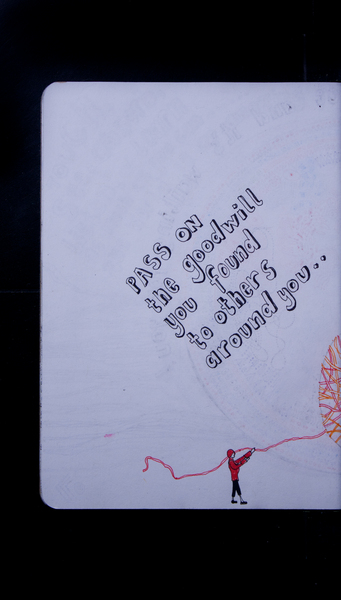 PASS ON
the goodwill
you found
to others
around you..